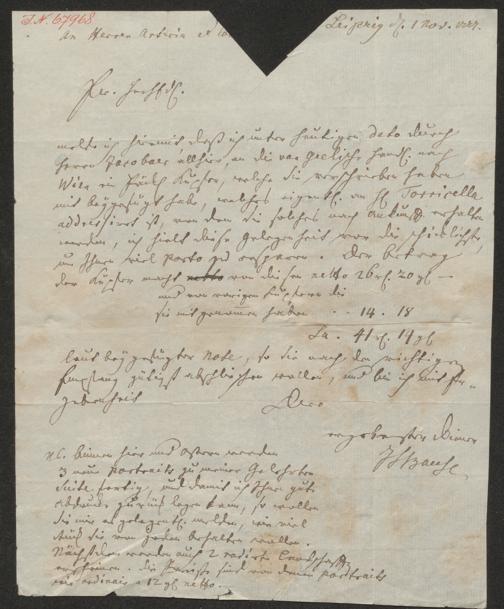 I.N. 67968
An Herrn Artaria et Co
Leipzig d. 1 Nov.
Pr.
melde ich hiermit daß ich unter heutigen dato durch
Herrn allhier, an die van Handl. nach
Wien ein Kupfer, welche Sie verschrieben haben
mit beygefügt habe, welches eigentl. an H. Torricella
addressirt ist, von dem Sie solches nach Ankunfft erhalten
werden, ich hielt diese Gelegenheit vor die schicklichste,
um Ihnen viel porto zu ersparen. Der betrag
der Kupfer macht netto von diesen netto 26 rl. 20 gl
und von vorigen Kupfern die
Sie mit genomen haben - - 14 . 18
Sa. 41 rl. 14 gl
laut beygefügter Note, so Sie nach den richtigen
Empfang gütigst abschreiben wollen, und bin ich mit Er-
gebenheit
Dero
ergebenster Diener
JFBause
N.S. binnen hier und Ostern werden
3 neue Portraits zu meiner Gelehrten
Suite fertig, und damit ich Ihnen gute
abdrucke zurück legen kan, so wollen
Sie mir es gelegentl. melden, wie viel
Stück Sie von jeden behalten wollen.
Nächstdem werden auch 2 radirte Landschafften
erscheinen. die Preise sind von denen Portraits
wie ordinair a 12 gl netto.